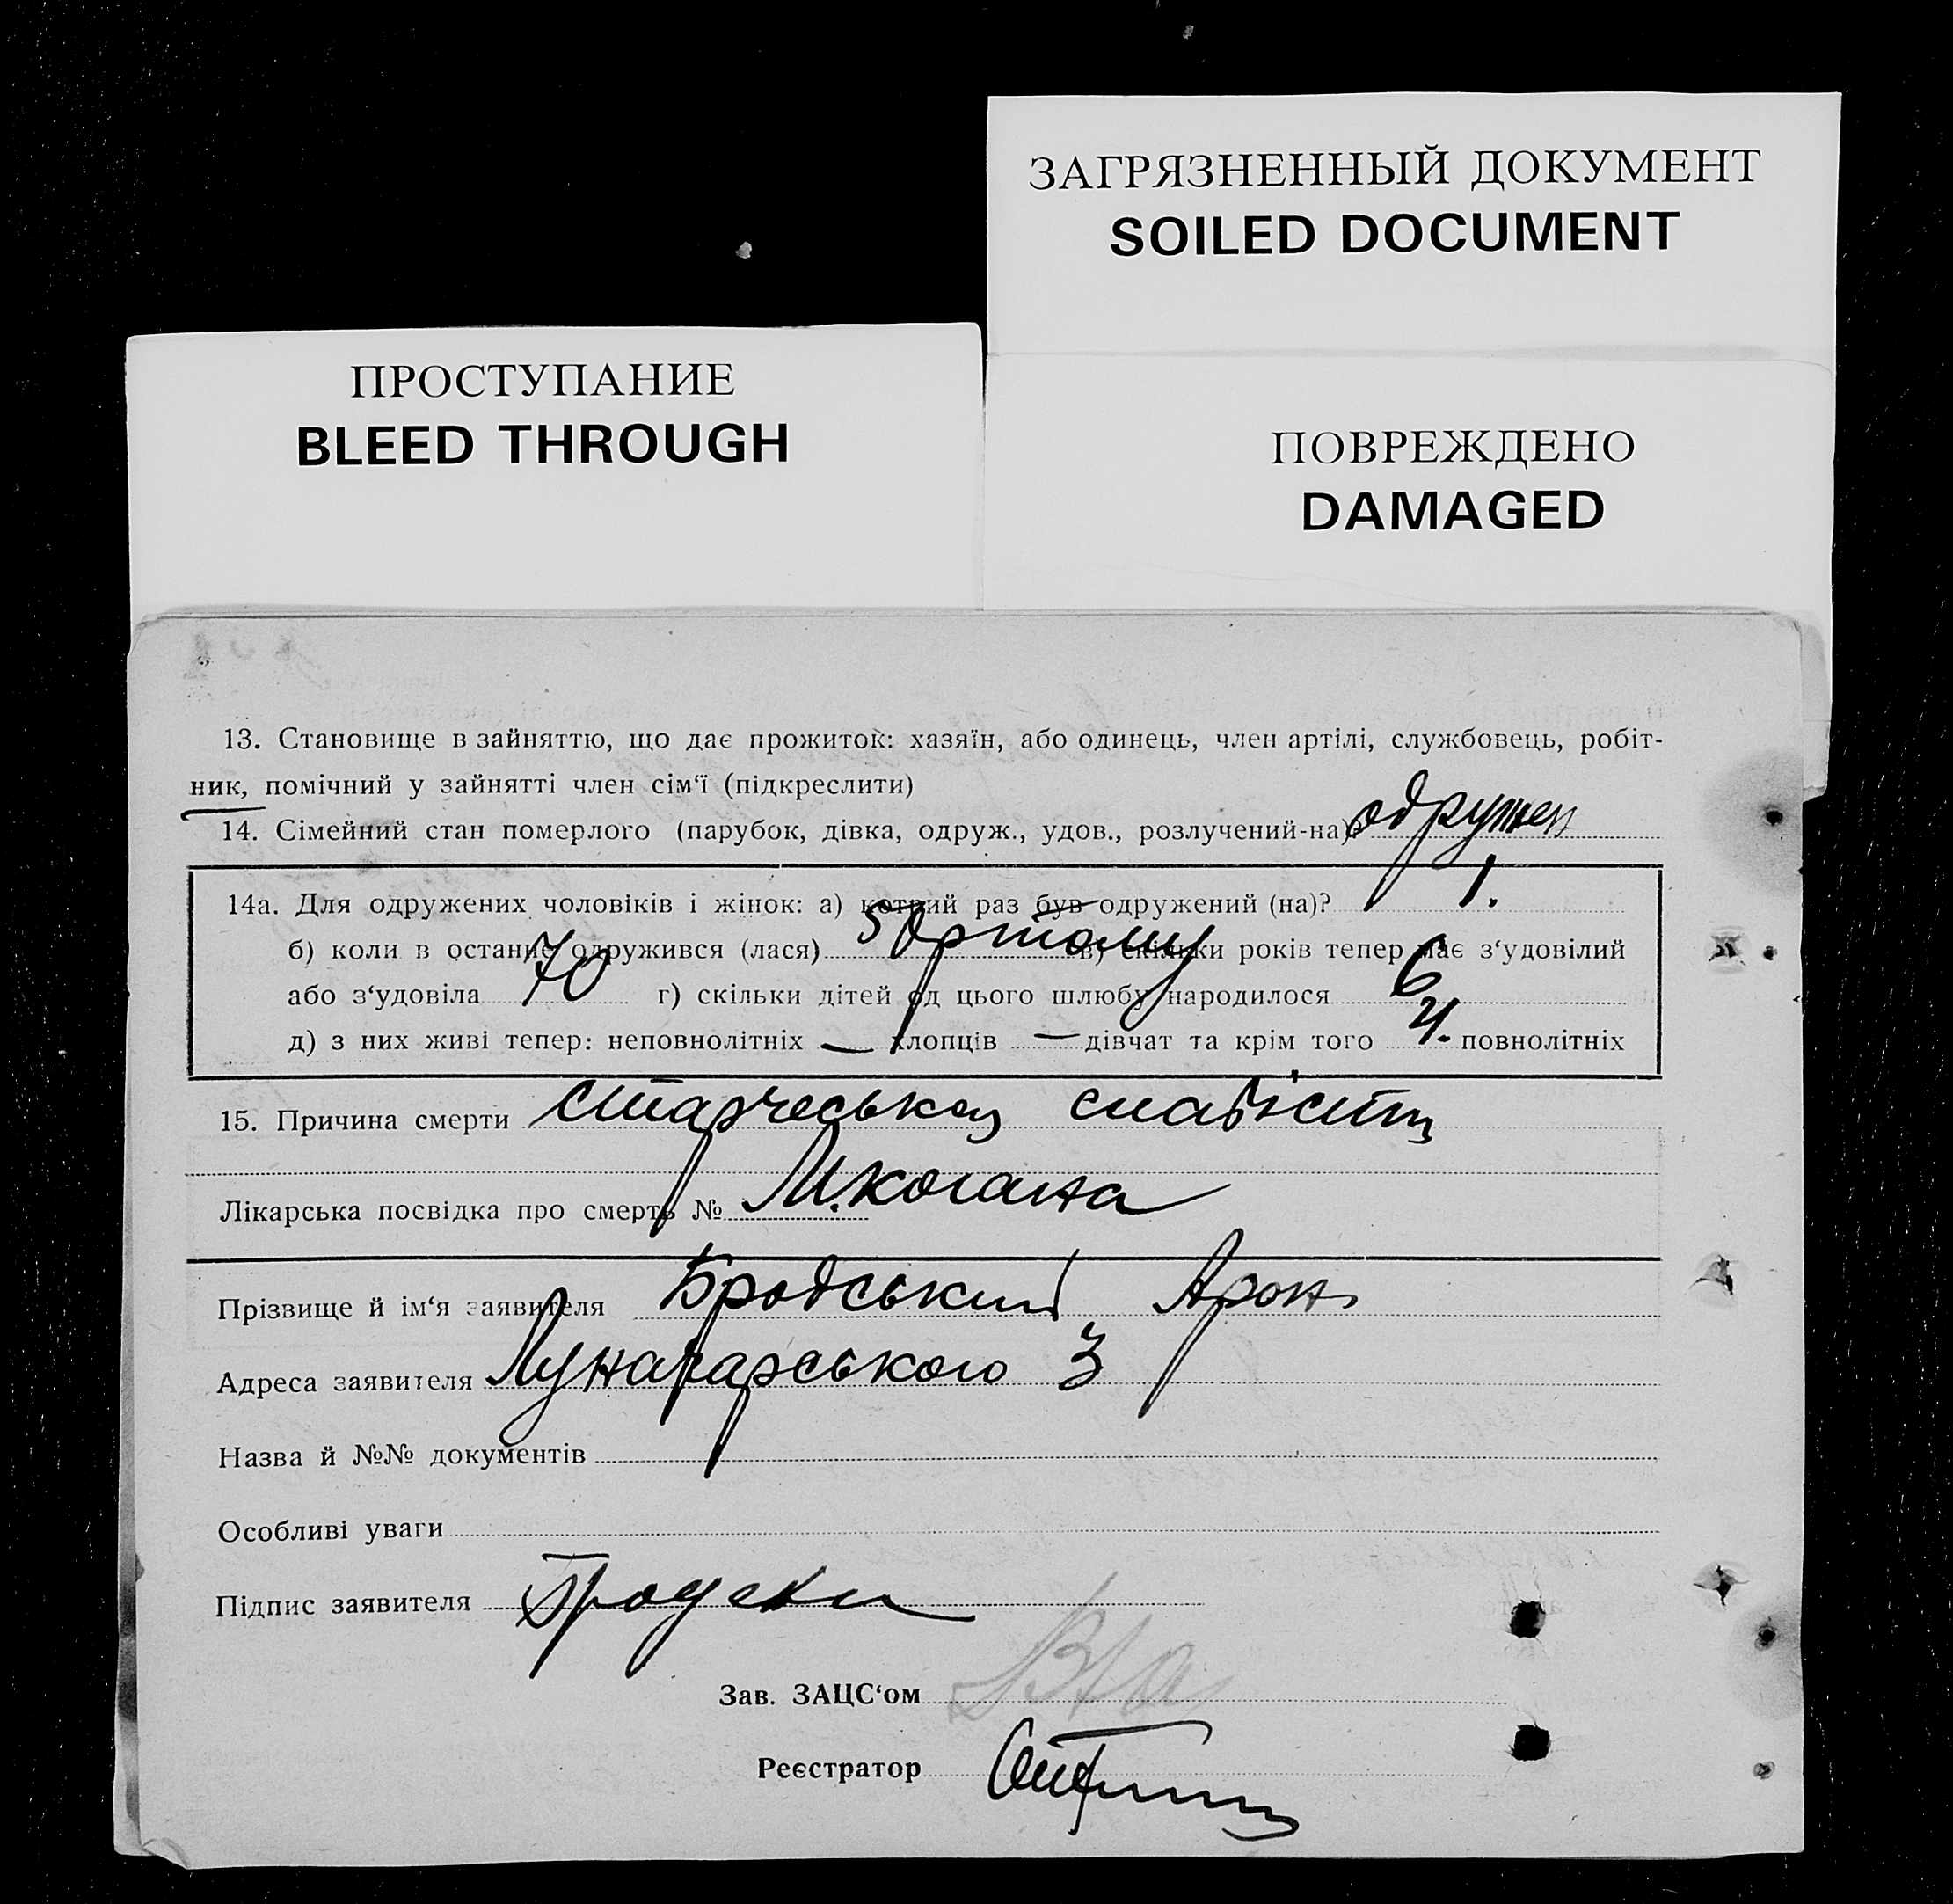 ЗАГРЯЗНЕННЫЙ ДОКУМЕНТ
SOILED DOCUMENT
ПРОСТУПАНИЕ
BLEED THROUGH
ПОВРЕЖДЕНО
DAMAGED
13. Становище в зайняттю, що дає прожиток: хазяїн, або одинець, член артілі, службовець, робіт-
ник, помічний у зайнятті член сім‘ї (підкреслити)
14. Сімейний стан померлого (парубок, дівка, одруж., удов., розлучений-на) одружен
14а. Для одружених чоловіків і жінок: а) котрий раз був одружений (на)? 1.
б) коли в останнє одружився (лася) 50 р тому в) скільки років тепер має з‘удовілий
або з‘удовіла 70 г) скільки дітей од цього шлюбу народилося 6
д) з них живі тепер: неповнолітніх — хлопців — дівчат та крім того 4. повнолітніх
15. Причина смерти старческая слабість
Лікарська посвідка про смерть № М.Когана
Прізвище й ім‘я заявителя Бродський Арон
Адреса заявителя Луначарського 3
Назва й №№ документів
Особливі уваги
Підпис заявителя Бродски
Зав. ЗАЦС‘ом
Реєстратор